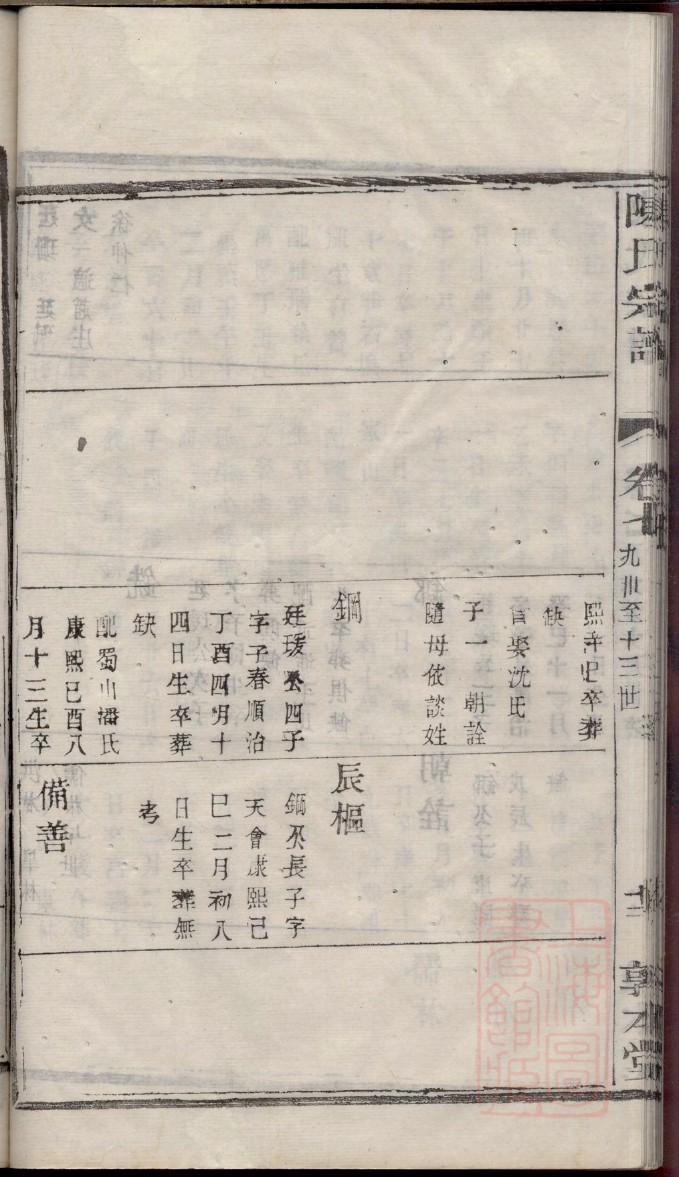 陳氏宗譜
卷七
九世至十三世
敦本堂
熙年 卒葬
缺
官娶沈氏
子一 朝詮
隨母依談姓
鋼
廷瑗公四子
字子春順治
丁酉四月十
四日生卒葬
缺
配蜀山潘氏
康熙己酉八
月十三生卒
辰樞
鋼公長子字
天會康熙己
巳二月初八
日生卒葬無
考
備善
上海圖書館藏